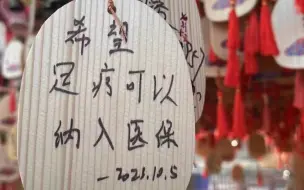 希望
足疗可以
纳入医保
—2023.10.5